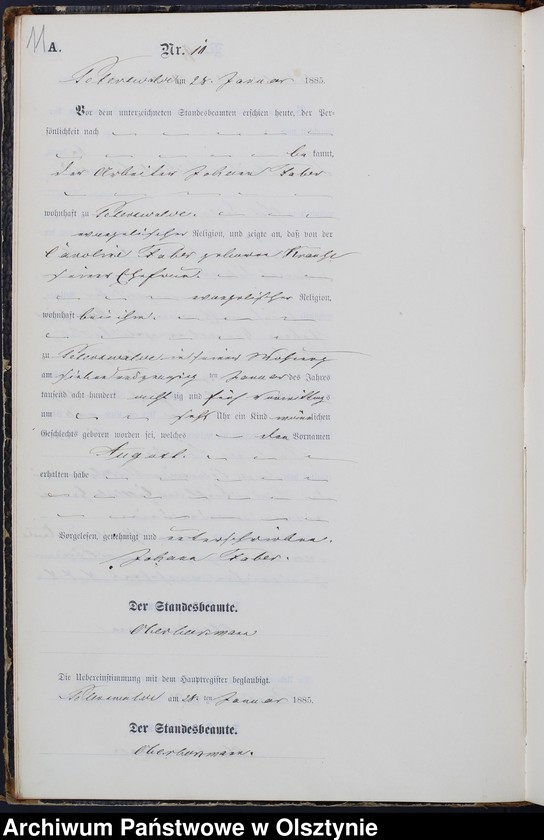 11
A.
Nr. 10
Peterswalde am 28. Januar 1885.
Vor dem unterzeichneten Standesbeamten erschien heute, der Per-
sönlichkeit nach
bekannt,
der Arbeiter Johann Faber
wohnhaft zu Peterswalde.
evangelischer Religion, und zeigte an, daß von der
Caroline Faber geborenen
seiner Ehefrau.
evangelischer Religion,
wohnhaft bei ihm.
zu Peterswalde in seiner Wohnung
am sieben und zwanzig ten Januar des Jahres
tausend acht hundert achtzig und fünf Vormittags
um Uhr ein Kind männlichen
Geschlechts geboren worden sei, welches den Vornamen
August.
erhalten habe
Vorgelesen, genehmigt und unterschrieben.
Johann Faber.
Der Standesbeamte.
Die Uebereinstimmung mit dem Hauptregister beglaubigt.
Peterswalde am 28. ten Januar 1885.
Der Standesbeamte.
Archiwum Państwowe w Olsztynie